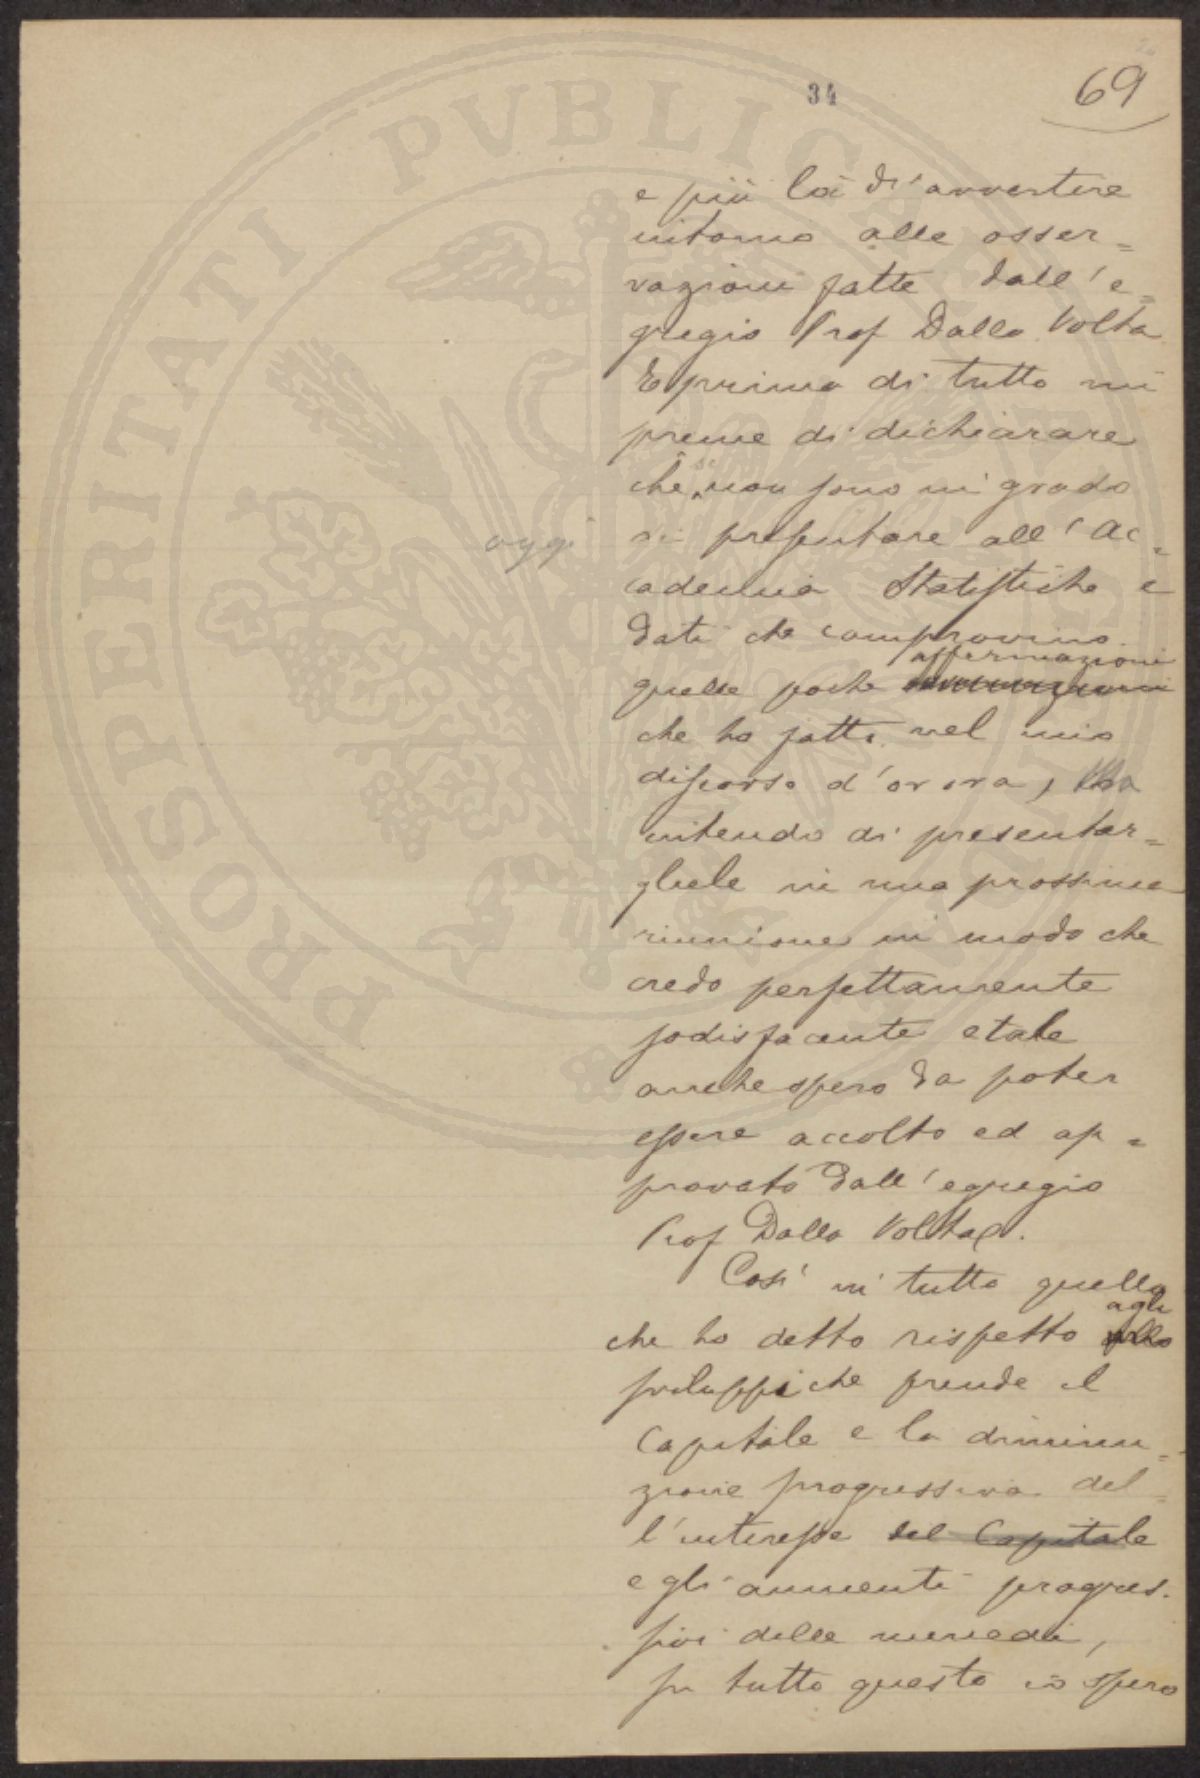 34
69
e più là di avvertire
intorno alle osser=
vazioni fatte dall'e=
gregio Prof Dalla Volta
E prima di tutto mi
preme di dichiarare
che se non sono in grado
oggi di presentare all'Ac=
cademia Statistiche e
dati che comprovino
affermazioni
quelle poche
che ho fatte nel mio
discorso d'or ora,
intendo di presentar=
gliele in una prossima
riunione in modo che
credo perfettamente
sodisfacente e tale
anche spero da poter
essere accolto ed ap=
provato dall'egregio
Prof Dalla Volta.
Così in tutto quello
agli
che ho detto rispetto
sviluppi che prende il
Capitale e la diminu=
zione progressiva del=
l'interesse del Capitale
e gli aumenti progres=
sivi delle mercedi,
su tutto questo io spero
PROSPERITATI PVBLICAE